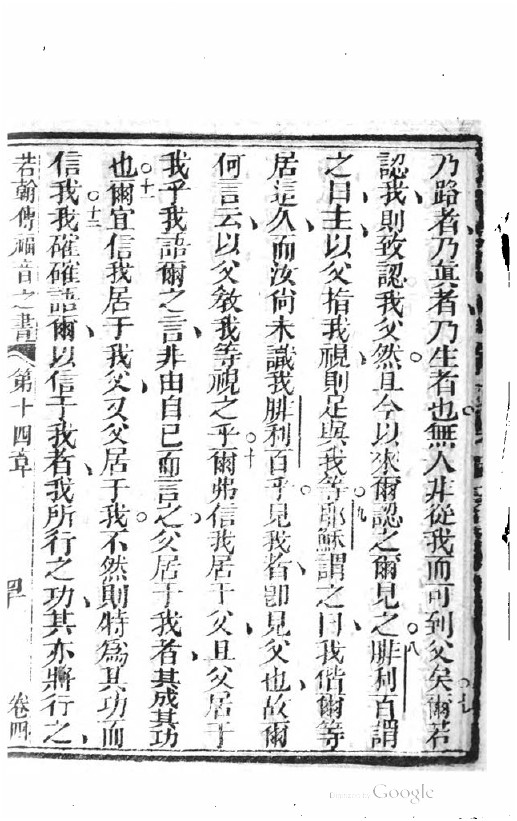 乃路者乃眞者乃生者也無人非從我而可到父矣爾若
七
認我則致認我父然且今以來爾認之爾見之腓利百謂
八
之曰主以父指我視則足與我等耶穌謂之曰我偕爾等
九
居這久而汝尚未識我腓利百乎見我者卽見父也故爾
何言云以父敎我等視之乎爾弗信我居于父且父居于
十
我乎我語爾之言非由自己而言之父居于我者其成其功
也爾宜信我居于我父又父居于我不然則特爲其功而
十一
信我我確確語爾以信于我者我所行之功其亦將行之
十二
若翰傳福音之書 第十四章 卷四
Digitized by Google